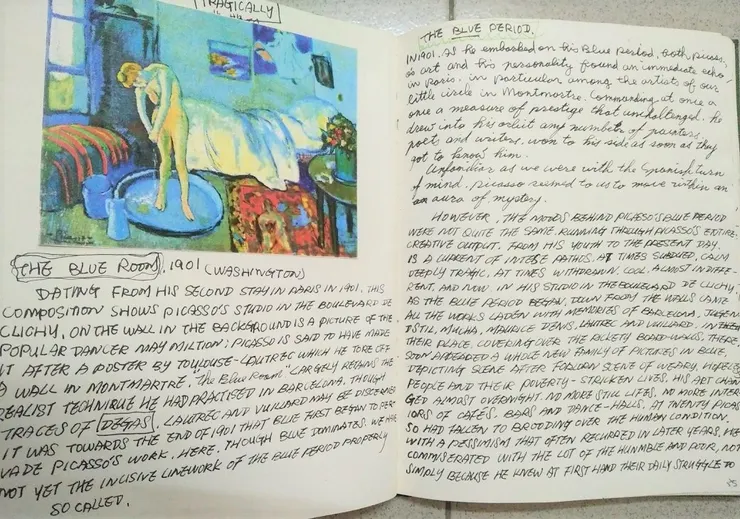 TRAGICALLY
THE BLUE ROOM, 1901 (WASHINGTON)
DATING FROM HIS SECOND STAY IN PARIS IN 1901. THIS
COMPOSITION SHOWS PICASSO'S STUDIO IN THE BOULEVARD DE
CLICHY, ON THE WALL IN THE BACKGROUND IS A PICTURE OF THE
POPULAR DANCER MAY MILTION: PICASSO IS SAID TO HAVE MADE
IT AFTER A POSTER BY TOULOUSE-LAUTREC WHICH HE TORE OFF
A WALL IN MONTMARTRE. "The Blue Room" LARGELY RETAINS THE
REALIST TECHNIQUE HE HAD PRACTISED IN BARCELONA. THOUGH
TRACES OF DEGAS, LAUTREC AND VUILLARD MAY BE DISCERNED
IT WAS TOWARDS THE END OF 1901 THAT BLUE FIRST BEGAN TO PER
VADE PICASSO'S WORK. HERE. THOUGH BLUE DOMINATES. WE HAVE
NOT YET THE INCISIVE LINEWORK OF THE BLUE PERIOD PROPERLY
SO CALLED.
THE BLUE PERIOD.
IN 1901. As he embarked on his Blue Period, both Picas.
so art and his personality found an immediate echo
in Paris. in particular among the artists of our
little circle in Montmartre. Commanding at once a
once a measure of prestige that unchallenged. he
drew into his orbit any number of painters,
poets and writers, won to his side as soon as they
got to know him.
Unfamiliar as we were with the Spanish turn
of mind. Picasso seemed to us to move within an
an aura of mystery.
HOWEVER, THE MOODS BEHIND PICASSO'S BLUE PERIOD
WERE NOT QUITE THE SAME. RUNNING THROUGH PICASSO'S ENTIRE
CREATIVE OUTPUT. FROM HIS YOUTH TO THE PRESENT DAY.
IS A CURRENT OF INTESE PATHOS. AT TIMES SUBDUED, CALM
DEEPLY TRAGIC, AT TIMES WITHDRAWN, COOL, ALMOST IN DIFFE-
RENT, AND NOW IN HIS STUDIO IN THE BOULEVARD DE CLICHY,
AS THE BLUE PERIOD BEGAN, DOWN FROM THE WALLS CAME
ALL THE WORKS LADEN WITH MEMORIES OF BARCELONA. JUGEN
STIL, MUCHA, MAURICE DENIS, LAUTREC AND VUILLARD. IN
THEIR PLACE. COVERING OVER THE RICKETY BOARD-WALLS, THERE
SOON APPEARED A WHOLE NEW FAMILY OF PICTURES IN BLUE,
DEPICTING SCENE AFTER FORLORN SCENE OF WEARY, HOPELESS
PEOPLE AND THEIR POVERTY-STRICKEN LIVES. HIS ART CHAN
GED ALMOST OVERNIGHT. NO MORE STILL LIFES. NO MORE INTER
IORS OF CAFÉS. BARS AND DANCE-HALLS. AT TWENTY PICAS
SO HAD FALLEN TO BROODING OVER THE HUMAN CONDITION
WITH A PESSIMISM THAT OFTEN RECURRED IN LATER YEARS. HE
COMMISERATED WITH THE LOT OF THE HUNMBLE AND POOR, NOT
SIMPLY BECAUSE HE KNEW AT FIRST HAND THEIR DAILY STRUGGLE TO